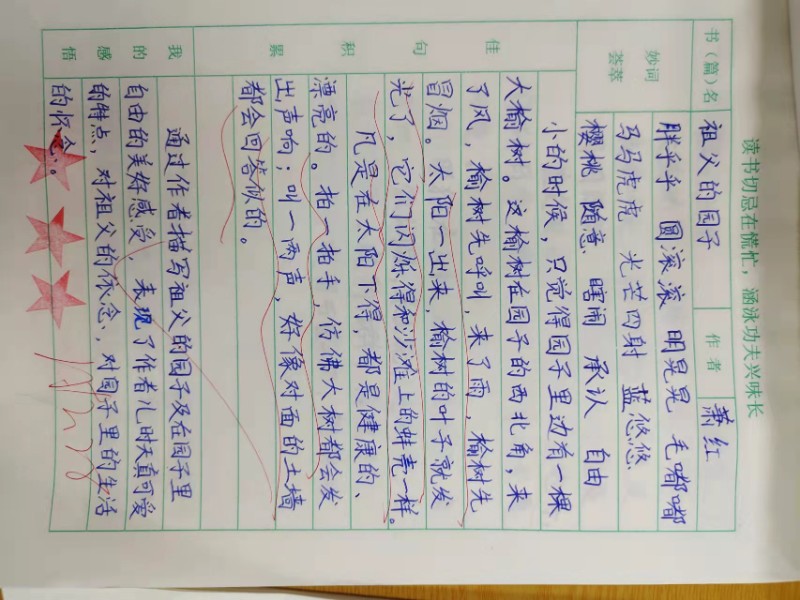 读书切忌在慌忙，涵泳功夫兴味长
书（篇）名 祖父的园子 作者 萧红
妙词荟萃
胖乎乎 圆滚滚 明晃晃 毛嘟嘟
马马虎虎 光芒四射 蓝悠悠
樱桃 随意 瞎闹 承认 自由
佳句积累
小的时候，只觉得园子里边有一棵
大榆树。这榆树在园子的西北角，来
了风，榆树先呼叫，来了雨，榆树先
冒烟。太阳一出来，榆树的叶子就发
光了，它们闪烁得和沙滩上的蚌壳一样。
凡是在太阳下得，都是健康的、
漂亮的。拍一拍手，仿佛大树都会发
出声响；叫一两声，好像对面的土墙
都会回答似的。
我的感悟
通过作者描写祖父的园子及在园子里
自由的美好感受，表现了作者儿时天真可爱
的特点，对祖父的依念，对园子里的生活
的怀念。